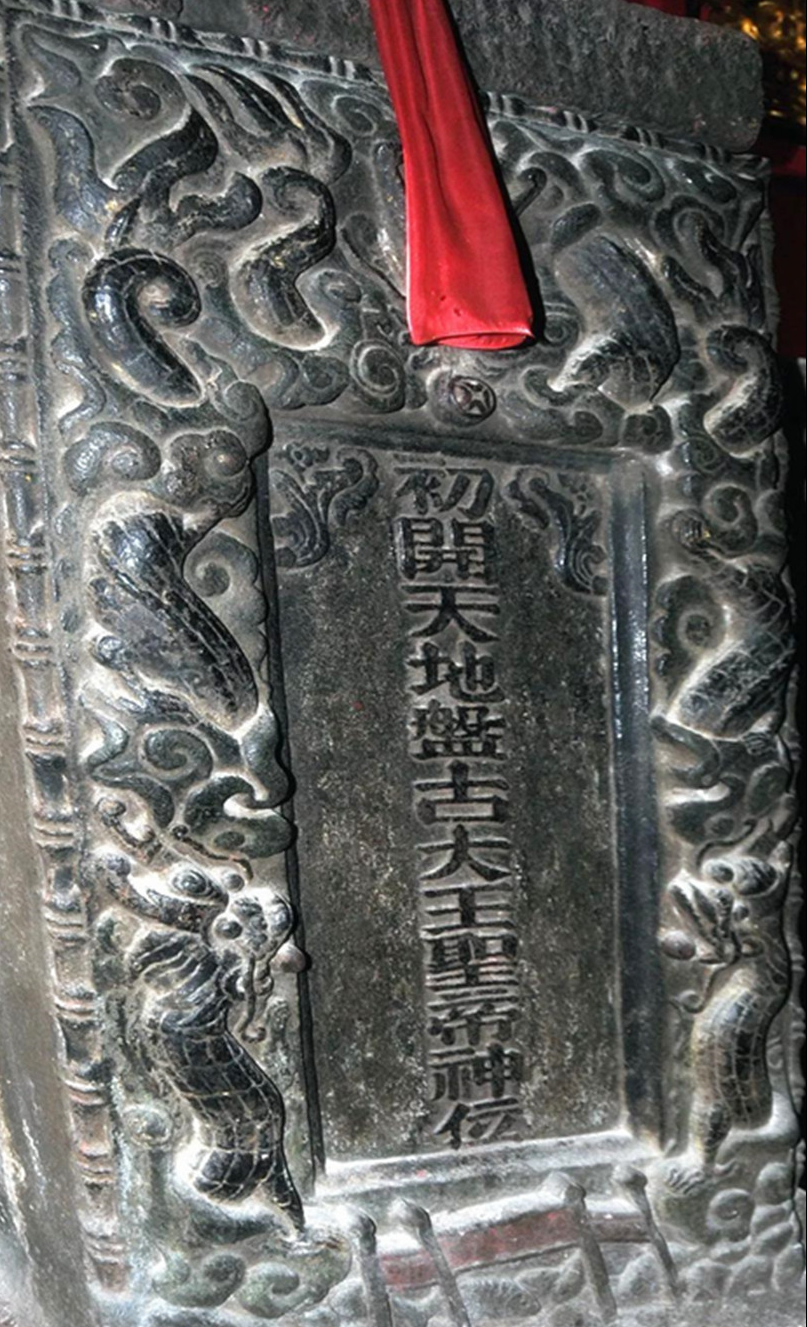 初開天地盤古大王聖帝神位